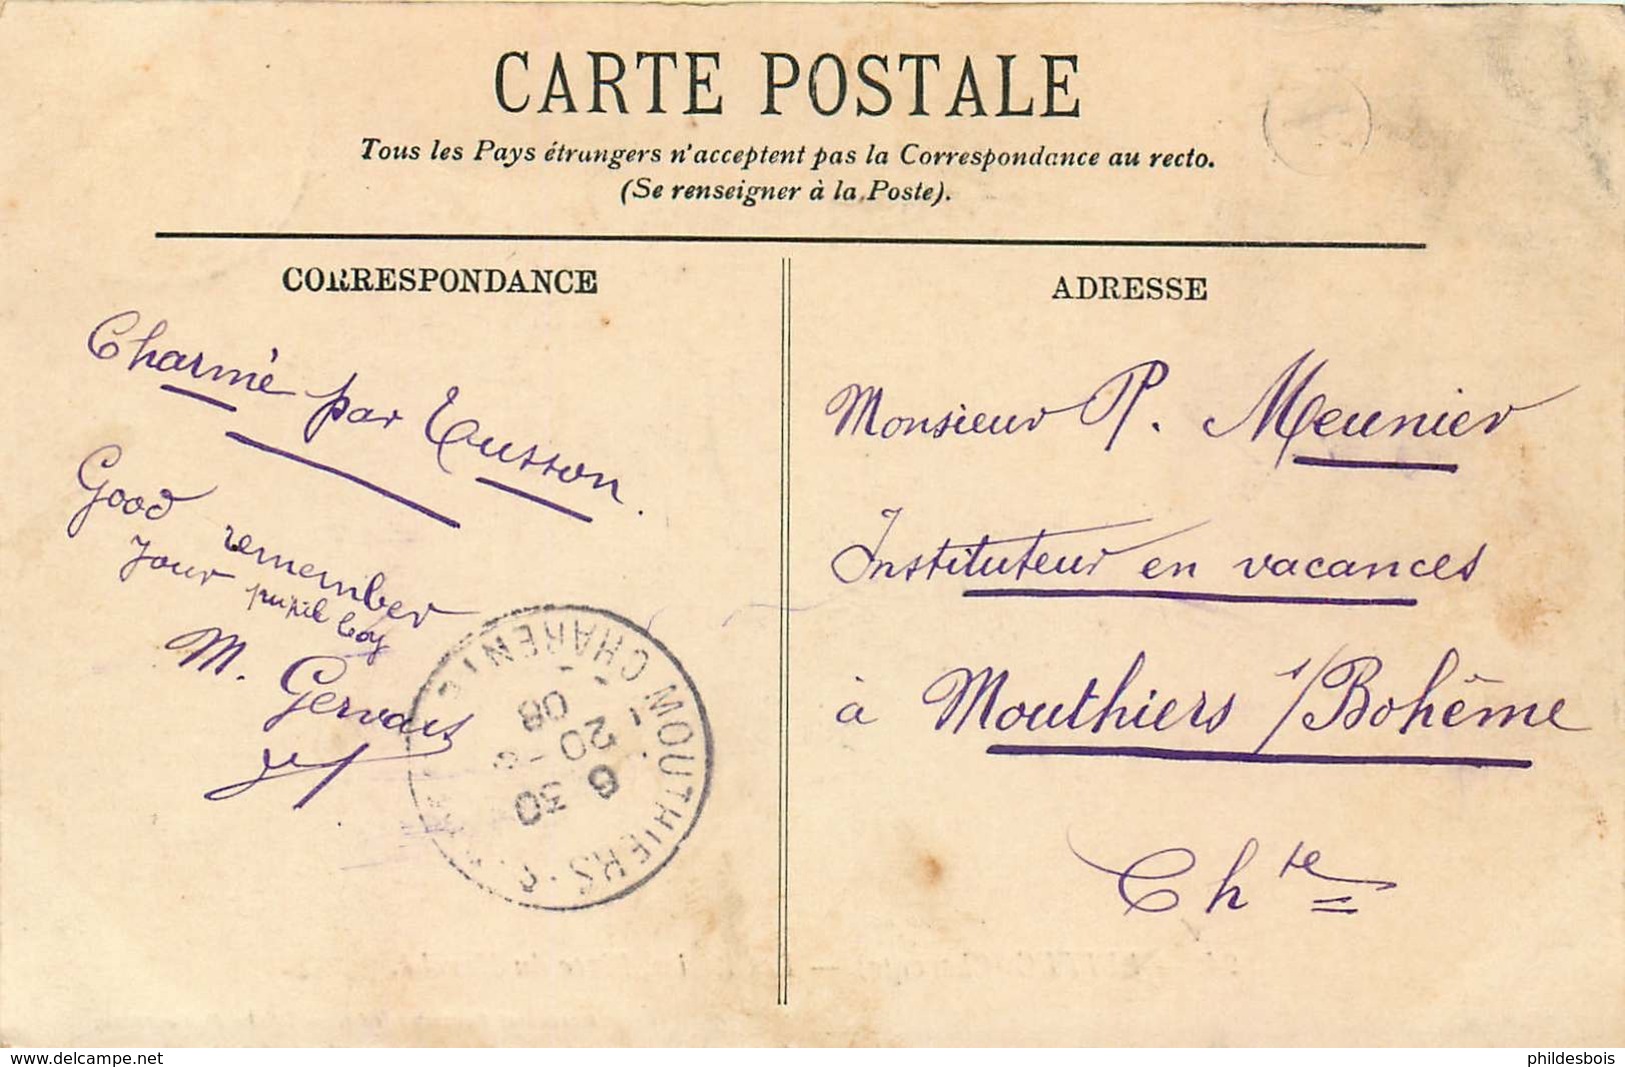 CARTE POSTALE
Tous les Pays étrangers n'acceptent pas la Correspondance au recto.
(Se renseigner à la Poste).
CORRESPONDANCE
Charmé par Tusson.
Good remember
Your pupil boy
M. Gervais
ADRESSE
Monsieur P. Meunier
Instituteur en vacances
à Mouthiers s/Bohême
Chte
MOUTHIERS
CHARENTE
6 30
20 - 9
08
www.delcampe.net
phildesbois